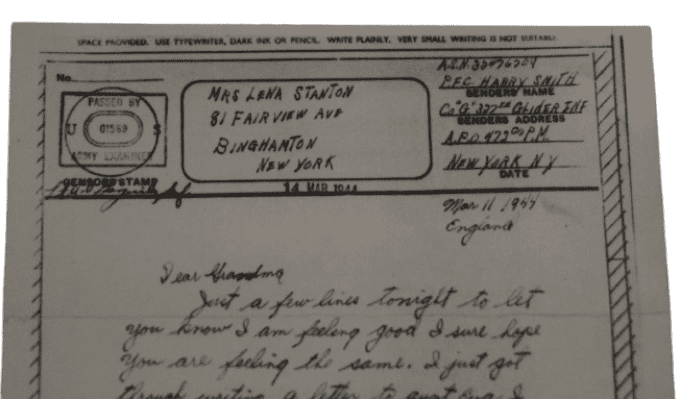 SPACE PROVIDED. USE TYPEWRITER, DARK INK OR PENCIL. WRITE PLAINLY. VERY SMALL WRITING IS NOT SUITABLE.
No.
PASSED BY
U 01569 S
ARMY EXAMINER
CENSOR'S STAMP
MRS LENA STANTON
81 FAIRVIEW AVE
BINGHAMTON
NEW YORK
A.S.N.
P.F.C. HARRY SMITH
SENDERS NAME
Co "G" 327th GLIDER INF
SENDERS ADDRESS
A.P.O. 472 P.M.
NEW YORK N.Y
DATE
14 MAR 1944
Mar 11 1944
England
Dear Grandma
Just a few lines tonight to let
you know I am feeling good I sure hope
you are feeling the same. I just got
through writing a letter to aunt Eva I